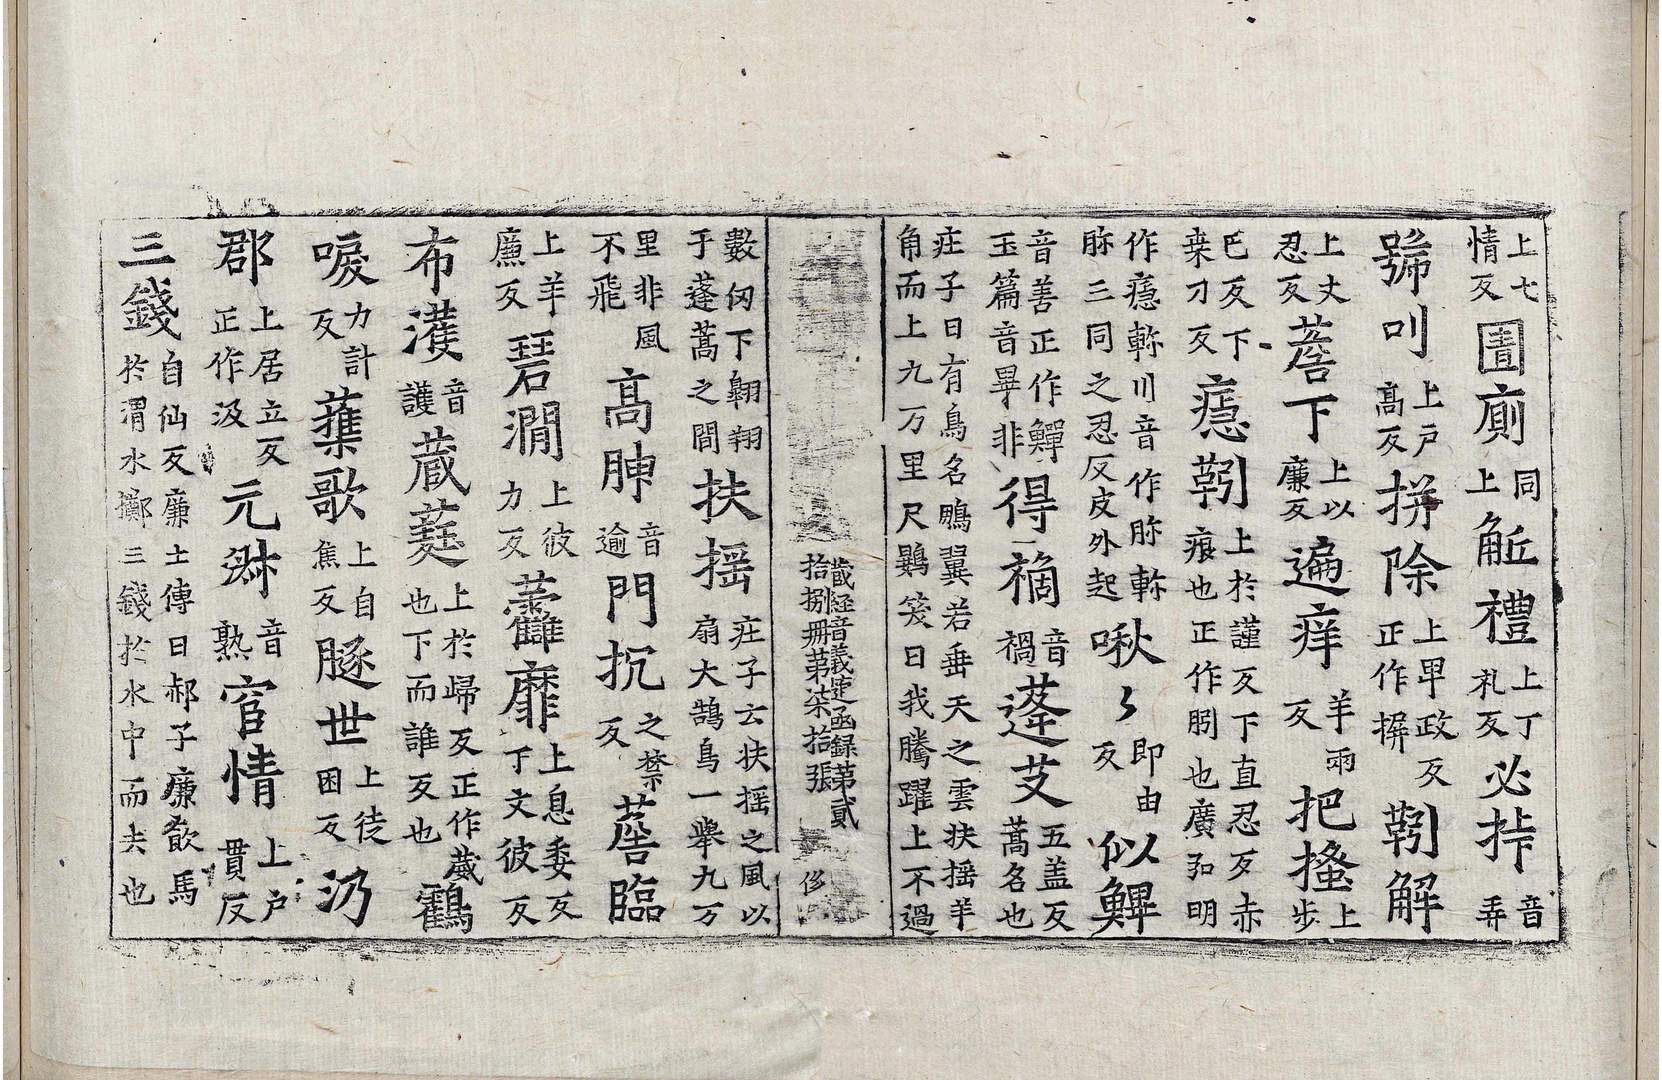 上七情反圊廁同上觝禮上丁礼反必挊音弄
號叫上戸高反拼除上早政反正作摒靷解
上丈忍反薝下上以廉反遍痒羊兩反把搔上步
巴反下桒刀反癮靷上於謹反下直忍反赤痕也正作胗也廣疋明
作癮䡅川音作胗䡅胗三同之忍反皮外起啾〻即由反似鱓
音善正作鱓玉篇音畢非得禍音禍蓬艾五盖反蒿名也
庄子曰有鳥名鵬翼若垂天之雲扶揺羊角而上九万里尺鷃笑曰我騰躍上不過
藏經音義随函録第貳拾捌冊第柒拾張 侈
數仞下翺翔于蓬蒿之間扶揺庄子云扶揺之風以扇大鵠鳥一舉九万
里非風不飛高䏚音逾門抗之禁反薝臨
上羊廉反琹澗上彼力反虇靡上息委反下文彼反
布濩音護葳蕤上於歸反正作葳也下而誰反也鸖
唳力計反蘓歌上自焦反豚世上徒困反汲
郡上居立反正作汲元淋音熟官情上户貫反
三錢自仙反廉士傳曰郝子廉飲馬於渭水擲三錢於水中而去也